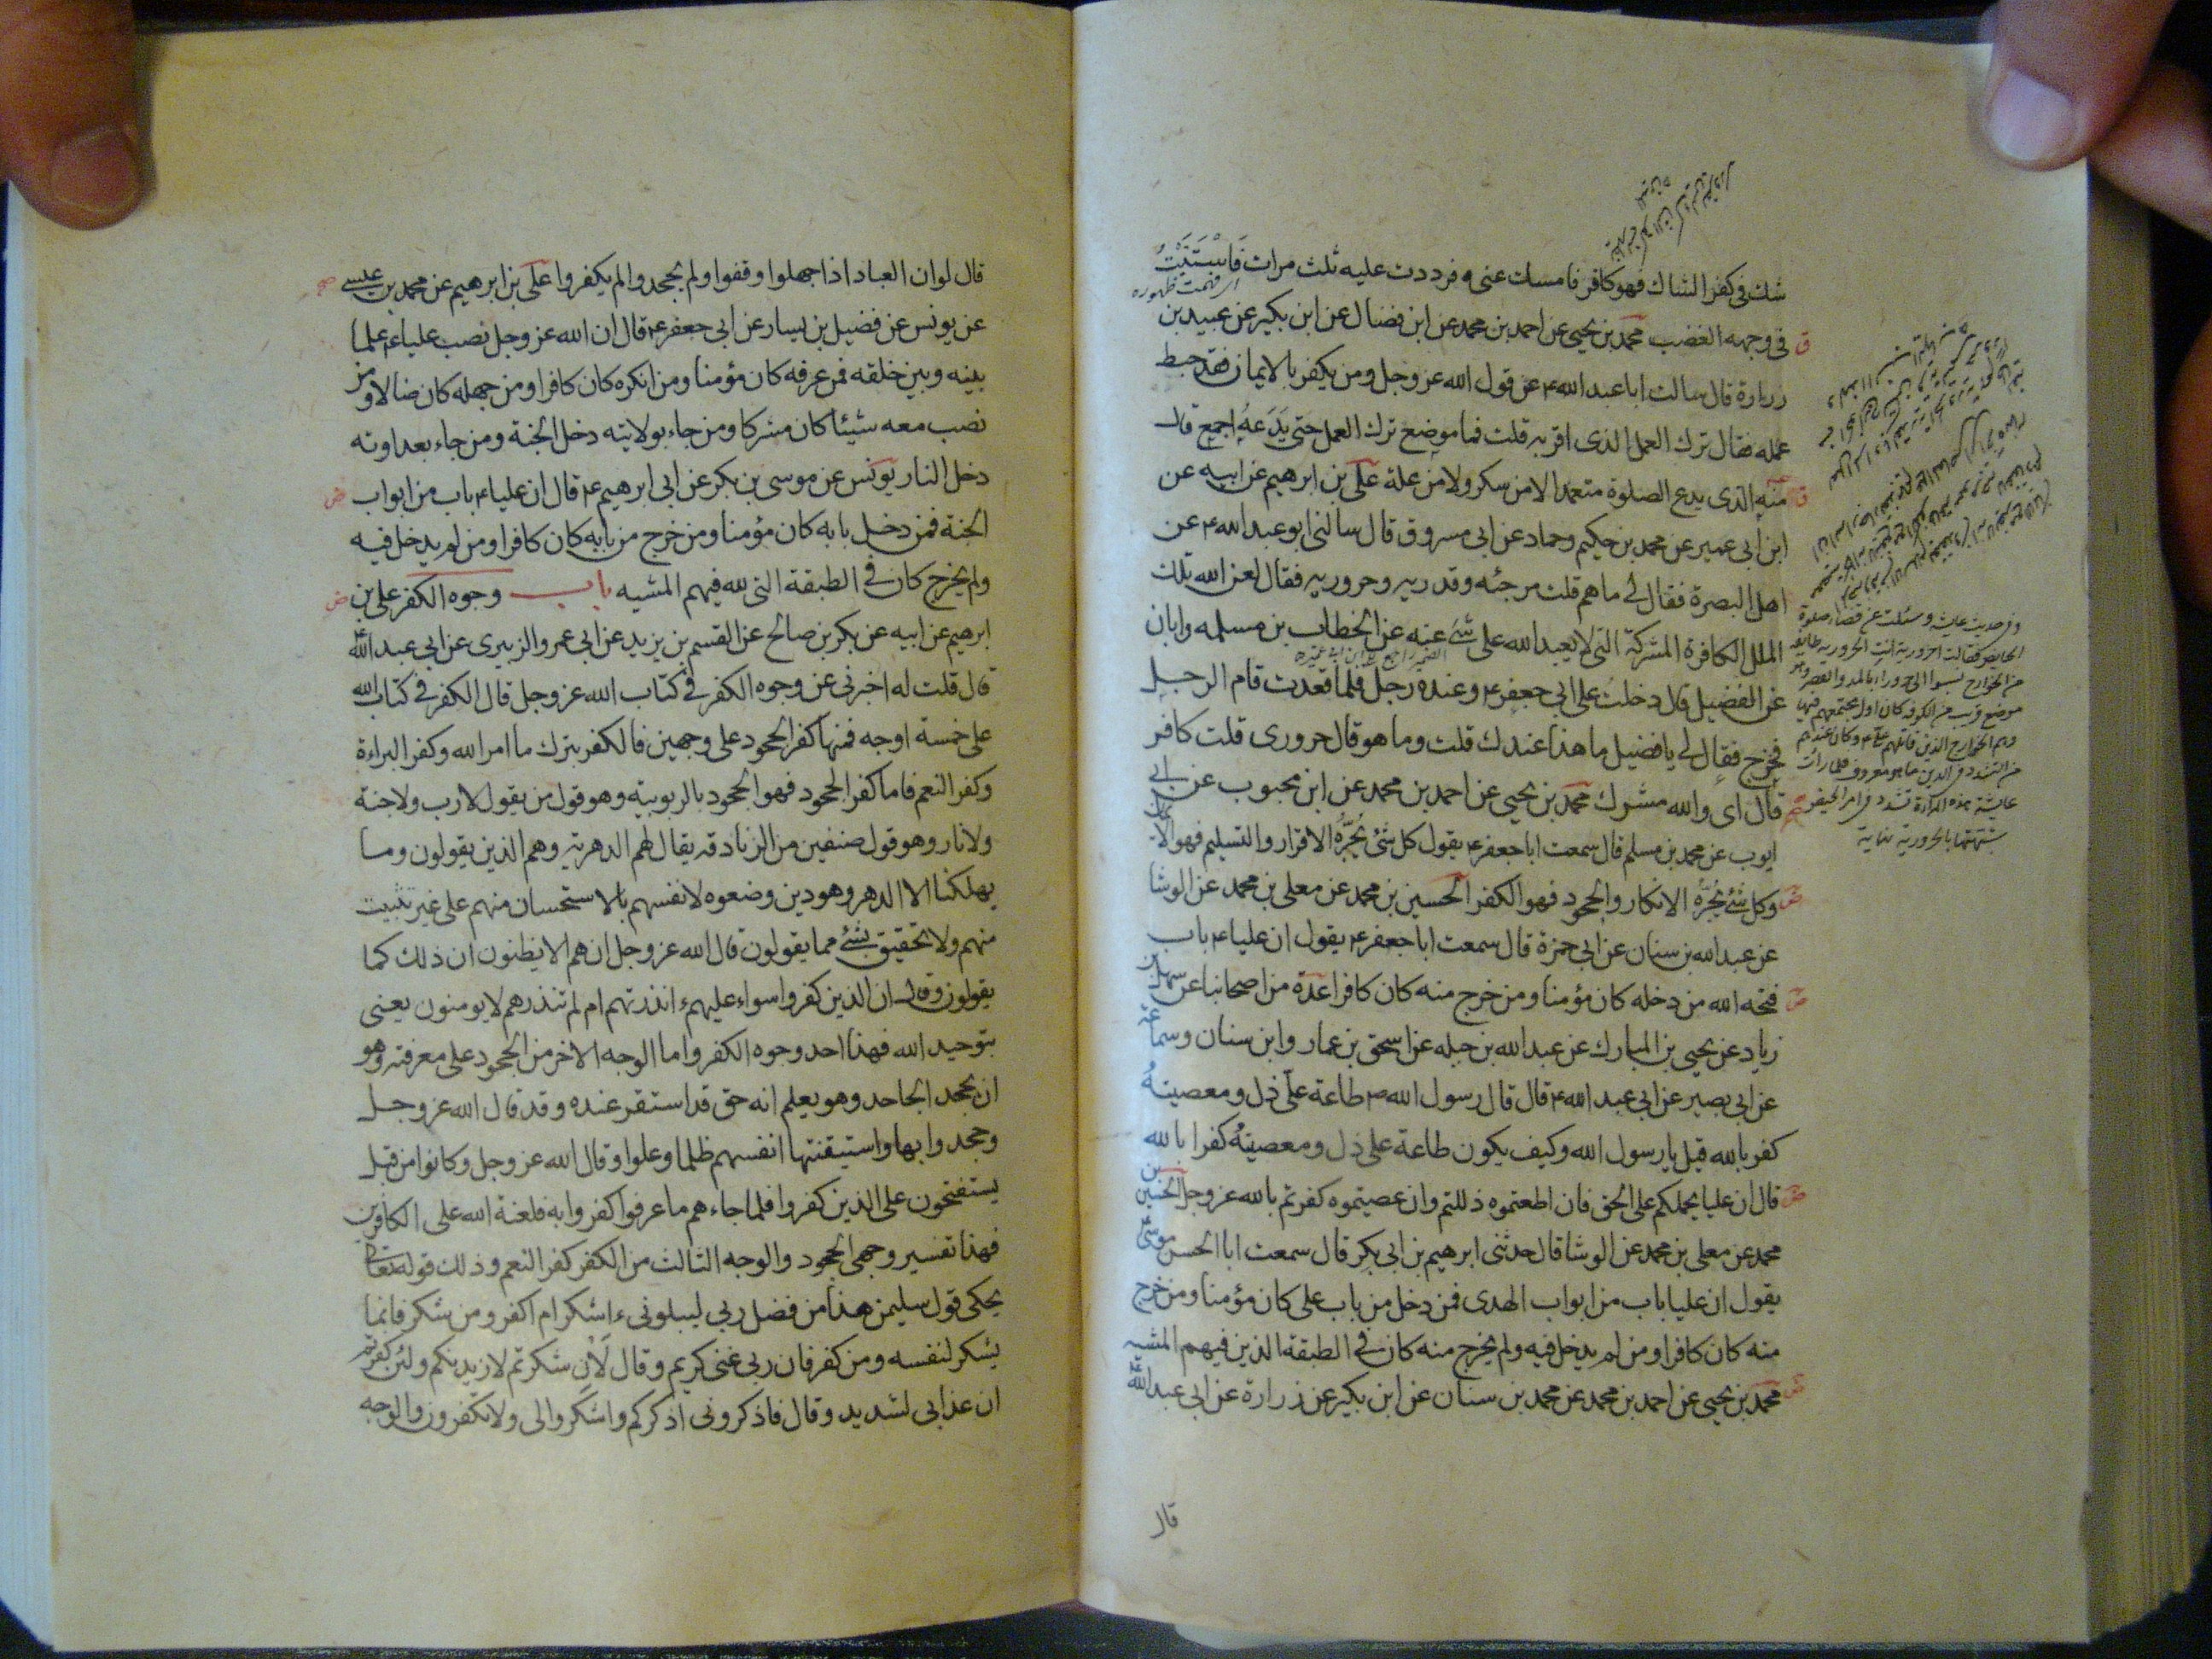 شك في كفر الشاك فهو كافر فامسك عنى و فرددت عليه ثلث مرات فَاسْتَبَنْتُ
اى فهمت ظهوره
فى وجهه الغضب محمد بن يحيى عن احمد بن محمد عن ابن فضال عن ابن بكير عن عبيد بن
زرارة قال سالت ابا عبد الله ع عن قول الله عز وجل ومن يكفر بالايمان فقد حبط
عمله فقال ترك العمل الذى اقر به قلت فما موضع ترك العمل حتى يَدَعَهُ اجمع قال
منه الذى يدع الصلوة متعمدا لا من سكر ولا من علة على بن ابرهيم عن ابيه عن
ابن ابى عمير عن محمد بن حكيم وحماد عن ابى مسروق قال سالنى ابو عبد الله ع عن
اهل البصرة فقال لى ما هم قلت مرجئه وقدريه وحروريه فقال لعن الله تلك
الملل الكافرة المشركة التى لا يعبد الله على شىء عنه عن الخطاب بن مسلمه وابان
عن الفضيل قال دخلت على ابى جعفر ع وعنده رجل فلما قعدت قام الرجل
فخرج فقال لى يا فضيل ما هذا عندك قلت وما هو قال حرورى قلت كافر
قال اى والله مشرك محمد بن يحيى عن احمد بن محمد عن ابن محبوب عن ابى
ايوب عن محمد بن مسلم قال سمعت ابا جعفر ع يقول كل شئ يَجُرُّهُ الاقرار والتسليم فهو الايمان
وكل شئ يَجُرُّهُ الانكار والجحود فهو الكفر الحسين بن محمد عن معلى بن محمد عن الوشا
عن عبد الله بن سنان عن ابى حمزة قال سمعت ابا جعفر ع يقول ان عليا ع باب
فتحه الله من دخله كان مؤمنا ومن خرج منه كان كافرا عدة من اصحابنا عن سهل بن
زياد عن يحيى بن المبارك عن عبد الله بن جبله عن اسحق بن عمار وابن سنان وسماعة
عن ابى بصير عن ابى عبد الله ع قال قال رسول الله ص طاعة علىّ ذل ومعصيتهُ
كفر بالله قيل يا رسول الله وكيف يكون طاعة على ذل ومعصيتهُ كفرا بالله
قال ان عليا يحملكم على الحق فان اطعتموه ذللتم وان عصيتموه كفرتم بالله عز وجل الحسين بن
محمد عن معلى بن محمد عن الوشا قال حدثنى ابرهيم بن ابى بكر قال سمعت ابا الحسن موسى ع
يقول ان عليا باب من ابواب الهدى فمن دخل من باب على كان مؤمنا ومن خرج
منه كان كافرا ومن لم يدخل فيه ولم يخرج منه كان في الطبقة الذين فيهم المشيه
محمد بن يحيى عن احمد بن محمد عن محمد بن سنان عن ابن بكير عن زرارة عن ابى عبد الله ع
قال
وفى حديث عايشة وسئلت عن قضاء صلوة
الحايض فقالت احرورية انت الحرورية طايفة
من الخوارج نسبوا الى حرورا بالمد والقصر وهو
موضع قريب من الكوفه كان اول مجتمعهم فيها
وهم الخوارج الذين قاتلهم على ع وكان عندهم
من التشدد فى الدين ما هو معروف فلما رأت
عايشة هذه المرأة تشدد فى امر الحيض
شبهتها بالحرورية نهاية
قال لو ان العباد اذا جهلوا وقفوا ولم يجحدوا لم يكفروا على بن ابرهيم عن محمد بن عيسى
عن يونس عن فضيل بن يسار عن ابى جعفر ع قال ان الله عز وجل نصب عليا ع علما
بينه وبين خلقه فمن عرفه كان مؤمنا ومن انكره كان كافرا ومن جهله كان ضالا ومن
نصب معه شيئا كان مشركا ومن جاء بولايته دخل الجنة ومن جاء بعداوته
دخل النار يونس عن موسى بن بكر عن ابى ابرهيم ع قال ان عليا ع باب من ابواب
الجنة فمن دخل بابه كان مؤمنا ومن خرج من بابه كان كافرا ومن لم يدخل فيه
ولم يخرج كان في الطبقة التى لله فيهم المشيه باب وجوه الكفر على بن
ابرهيم عن ابيه عن بكر بن صالح عن القسم بن يزيد عن ابى عمرو الزبيرى عن ابى عبد الله ع
قال قلت له اخبرنى عن وجوه الكفر فى كتاب الله عز وجل قال الكفر فى كتاب الله
على خمسة اوجه فمنها كفر الجحود على وجهين فالكفر بترك ما امر الله وكفر البراءة
وكفر النعم فاما كفر الجحود فهو الجحود بالربوبية وهو قول من يقول لا رب ولا جنة
ولا نار وهو قول صنفين من الزنادقه يقال لهم الدهرية وهم الذين يقولون وما
يهلكنا الا الدهر وهو دين وضعوه لانفسهم بالاستحسان منهم على غير تثبيت
منهم ولا تحقيق بشئ مما يقولون قال الله عز وجل ان هم الا يظنون ان ذلك كما
يقولون وقال ان الذين كفروا سواء عليهم ءانذرتهم ام لم تنذرهم لا يومنون يعنى
بتوحيد الله فهذا احد وجوه الكفر واما الوجه الاخر من الجحود على معرفته وهو
ان يجحد الجاحد وهو يعلم انه حق قد استقر عنده وقد قال الله عز وجل
وجحدوا بها واستيقنتها انفسهم ظلما وعلوا وقال الله عز وجل وكانوا من قبل
يستفتحون على الذين كفروا فلما جاءهم ما عرفوا كفروا به فلعنة الله على الكافرين
فهذا تفسير وجهى الجحود والوجه الثالث من الكفر كفر النعم وذلك قوله تعالى
يحكى قول سليمن هذا من فضل ربى ليبلونى ءاشكر ام اكفر ومن شكر فانما
يشكر لنفسه ومن كفر فان ربى غنى كريم وقال لَئن شكرتم لازيدنكم ولئن كفرتم
ان عذابى لشديد وقال فاذكرونى اذكركم واشكروا لى ولا تكفرون والوجه